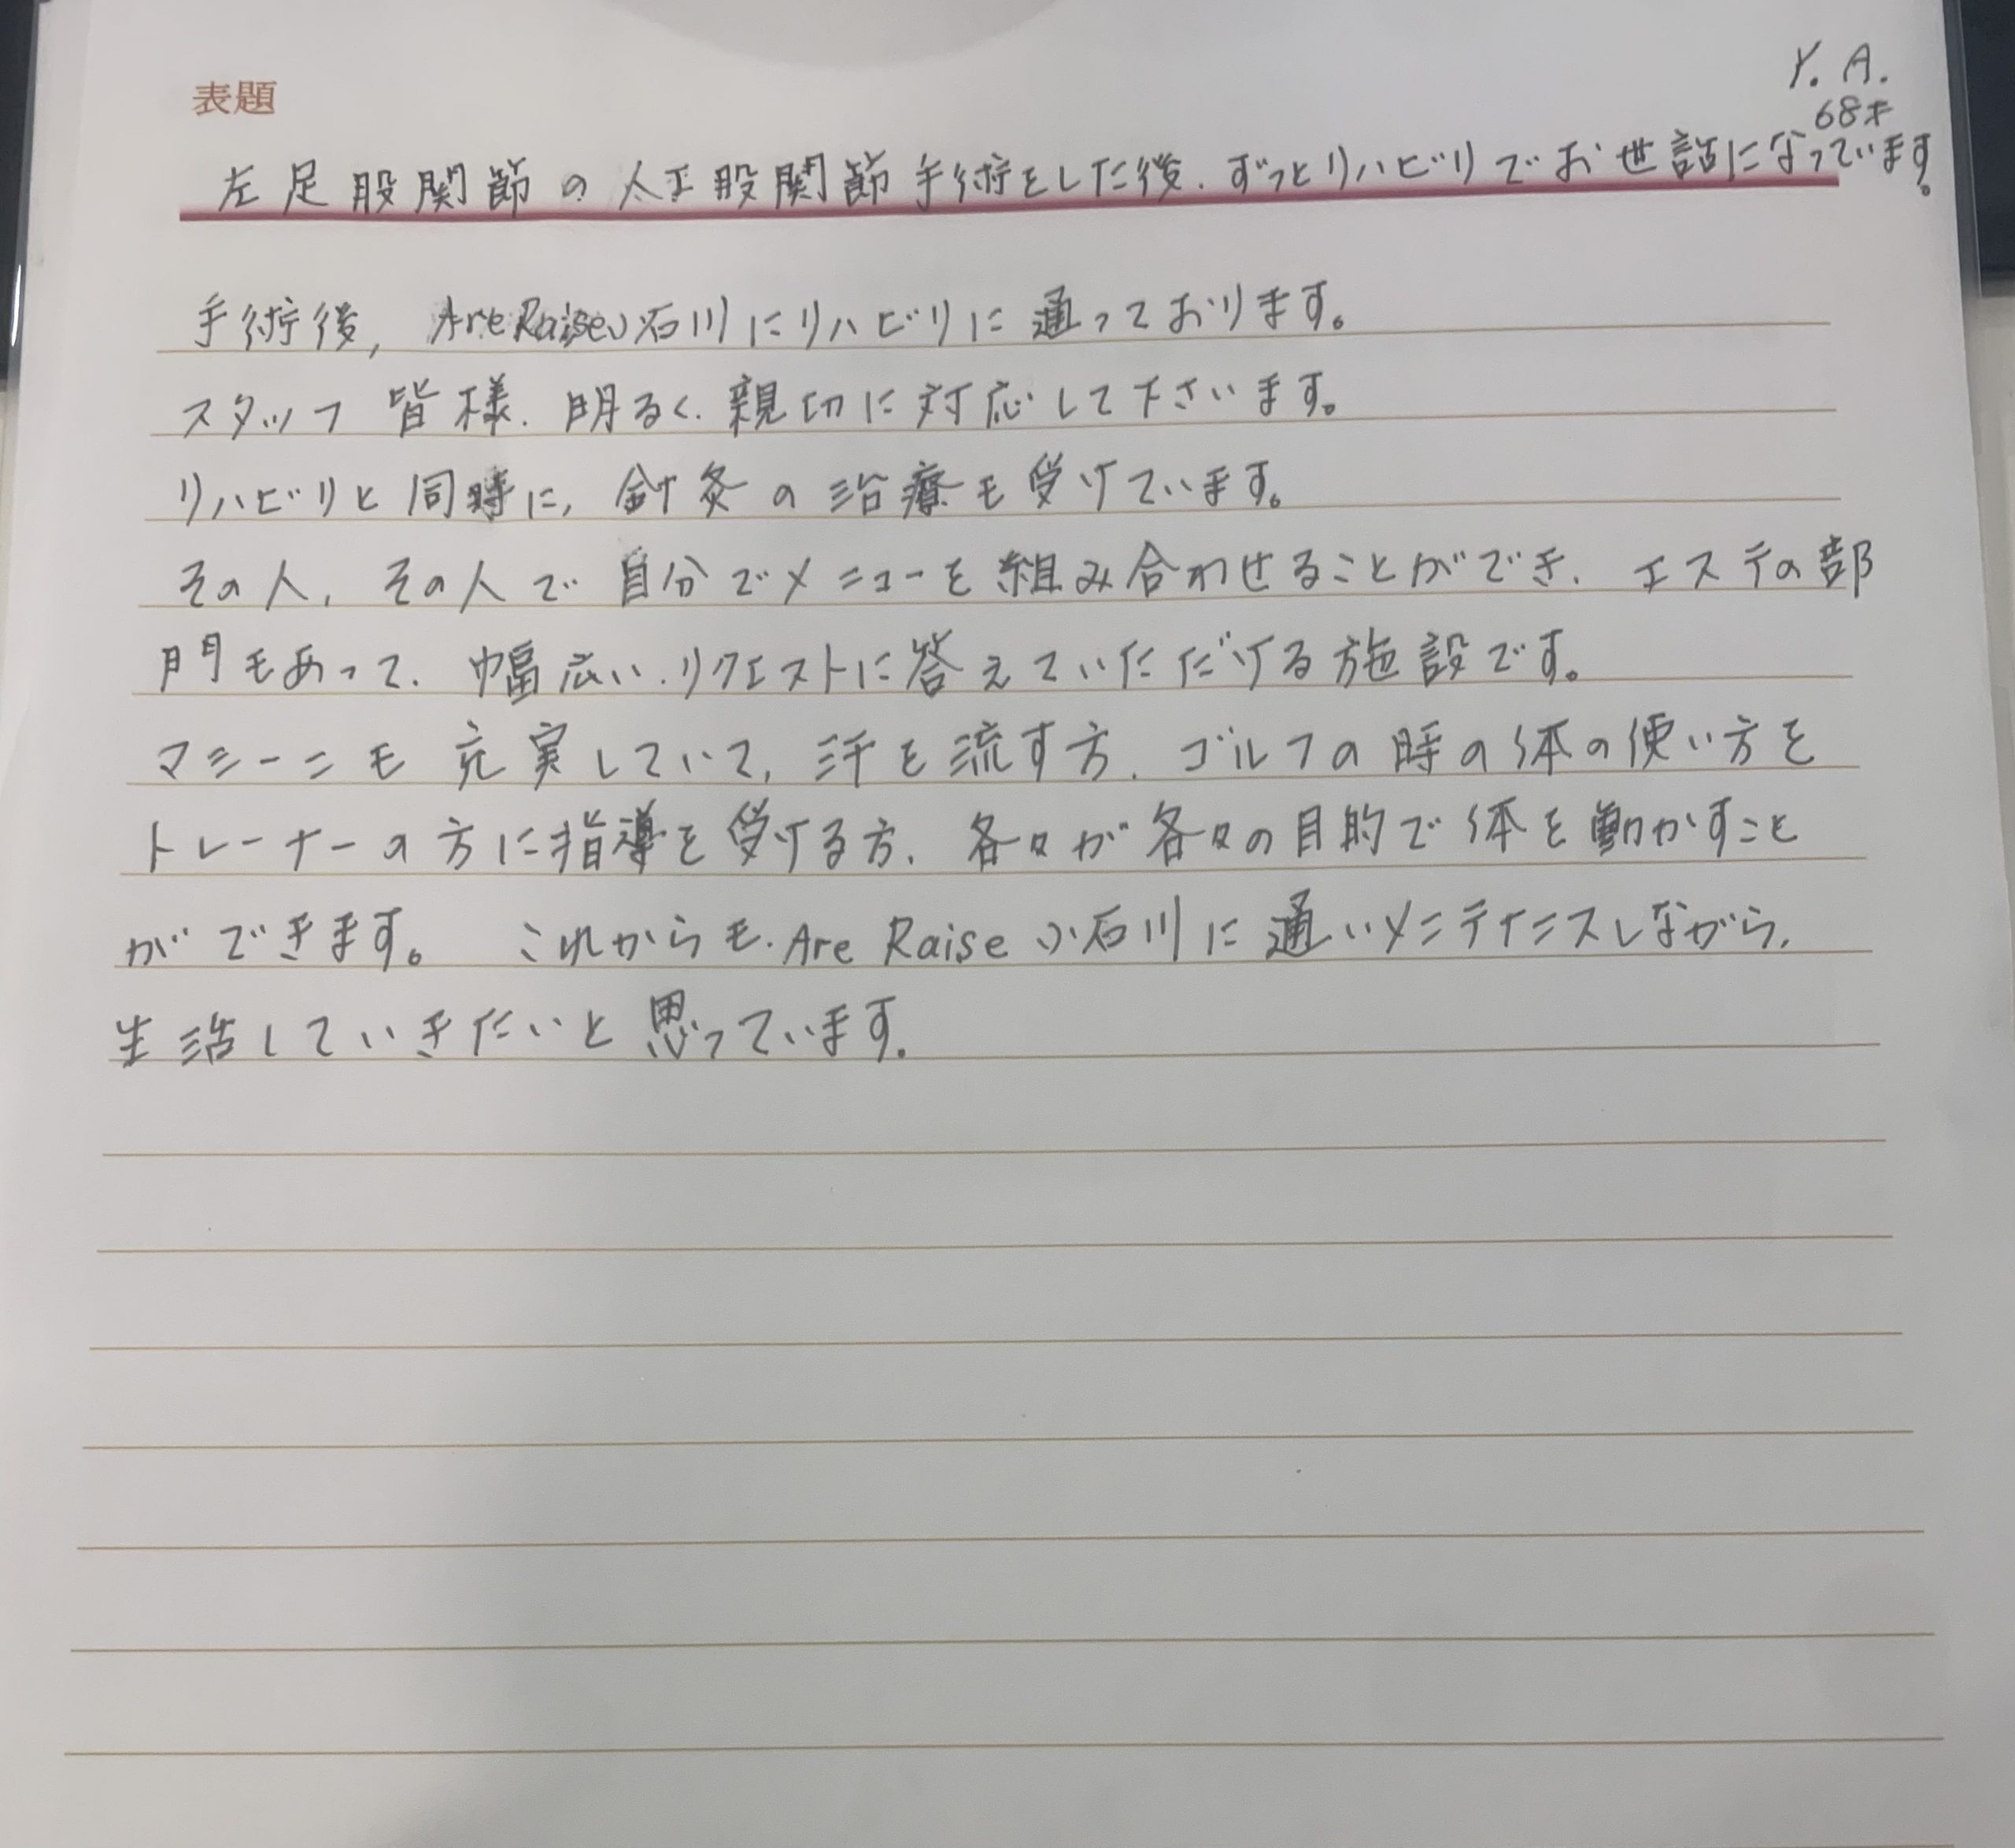 Y. A.
68才
表題
左足股関節の人工股関節手術をした後、ずっとリハビリでお世話になっています。
手術後, Are Raise小石川にリハビリに通っております。
スタッフ皆様、明るく、親切に対応して下さいます。
リハビリと同時に, 針灸の治療も受けています。
その人, その人で自分でメニューを組み合わせることができ、エステの部
門もあって、幅広い、リクエストに答えていただける施設です。
マシーンも充実していて, 汗を流す方、ゴルフの時の体の使い方を
トレーナーの方に指導を受ける方、各々が各々の目的で体を動かすこと
ができます。 これからも、Are Raise 小石川に通いメンテナンスしながら、
生活していきたいと思っています。